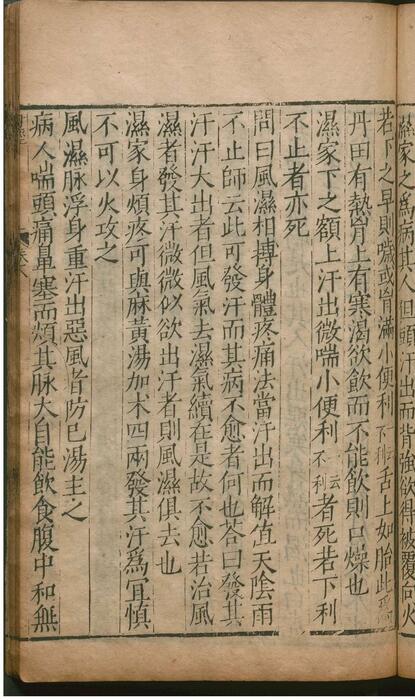 濕家之為病其人但頭汗出而背強欲得被覆向火
若下之早則噦或胷滿小便利一云不利舌上如胎此為
丹田有熱胷上有寒渴欲飲而不能飲則口燥也
濕家下之額上汗出微喘小便利一云不利者死若下利
不止者亦死
問曰風濕相摶身體疼痛法當汗出而解值天陰雨
不止師云此可發汗而其病不愈者何也荅曰發其
汗汗大出者但風氣去濕氣續在是故不愈若治風
濕者發其汗微微似欲出汗者則風濕俱去也
濕家身煩疼可與麻黃湯加术四兩發其汗為宜慎
不可以火攻之
風濕脉浮身重汗出惡風者防己湯主之
病人喘頭痛鼻塞而煩其脉大自能飲食腹中和無